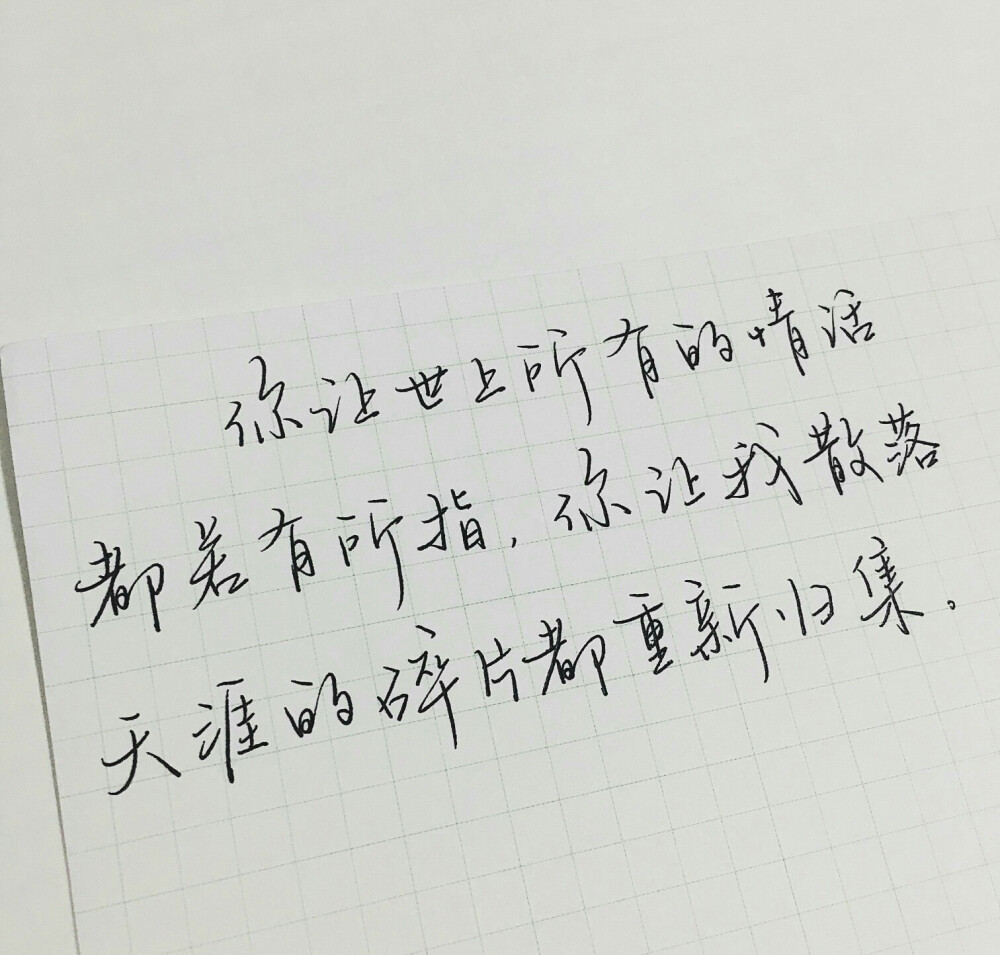 你让世上所有的情话
都若有所指,你让我散落
天涯的碎片都重新归集.